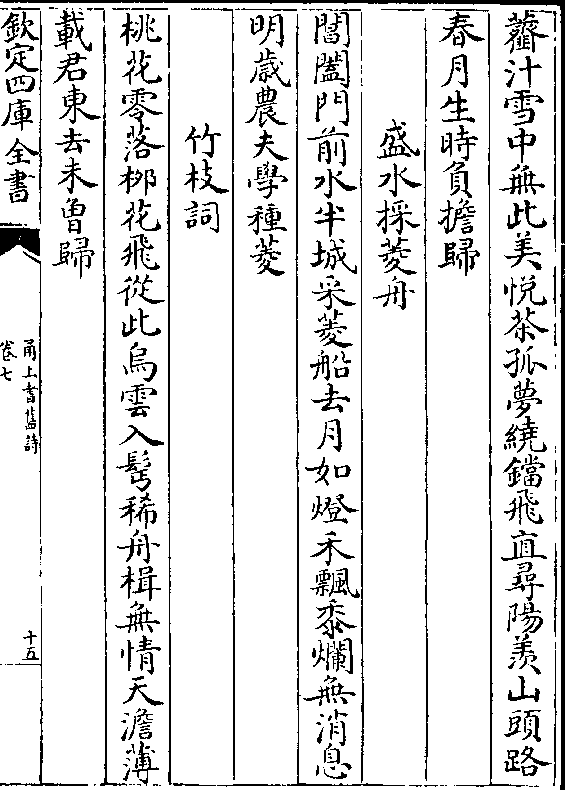 虀汁雪中無此美悅茶孤夢繞鐺飛直尋陽羨山頭路
春月生時負擔歸
盛水採菱舟
閶闔門前水半城采菱船去月如燈禾飄黍爛無消息
明歲農夫學種菱
竹枝詞
桃花零落柳花飛從此烏雲入髩稀舟楫無情天澹薄
載君東去未曾歸
欽定四庫全書
甬上耆舊詩
卷七
十五